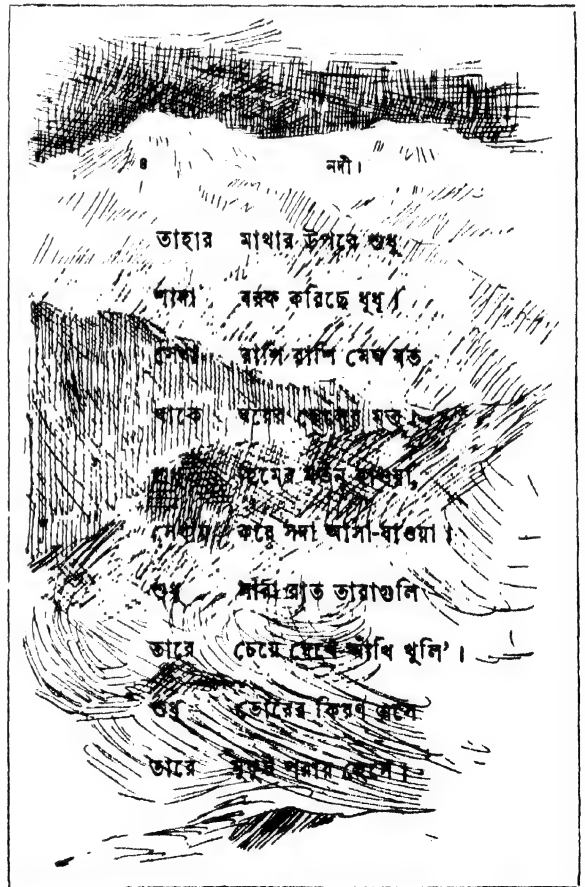 ৪ নদী।
তাহার মাথার উপরে শুধু
সাদা বরফ করিছে ধূধূ।
সেথা রাশি রাশি মেঘ যত
থাকে ঘরের ছেলের মত।
শুধু হিমের মতন হাওয়া,
সেথায় করে সদা আসা-যাওয়া।
শুধু সারা রাত তারাগুলি
তারে চেয়ে দেখে আঁখি খুলি’।
শুধু ভোরের কিরণ এসে
তারে মুকুট পরায় হেসে।